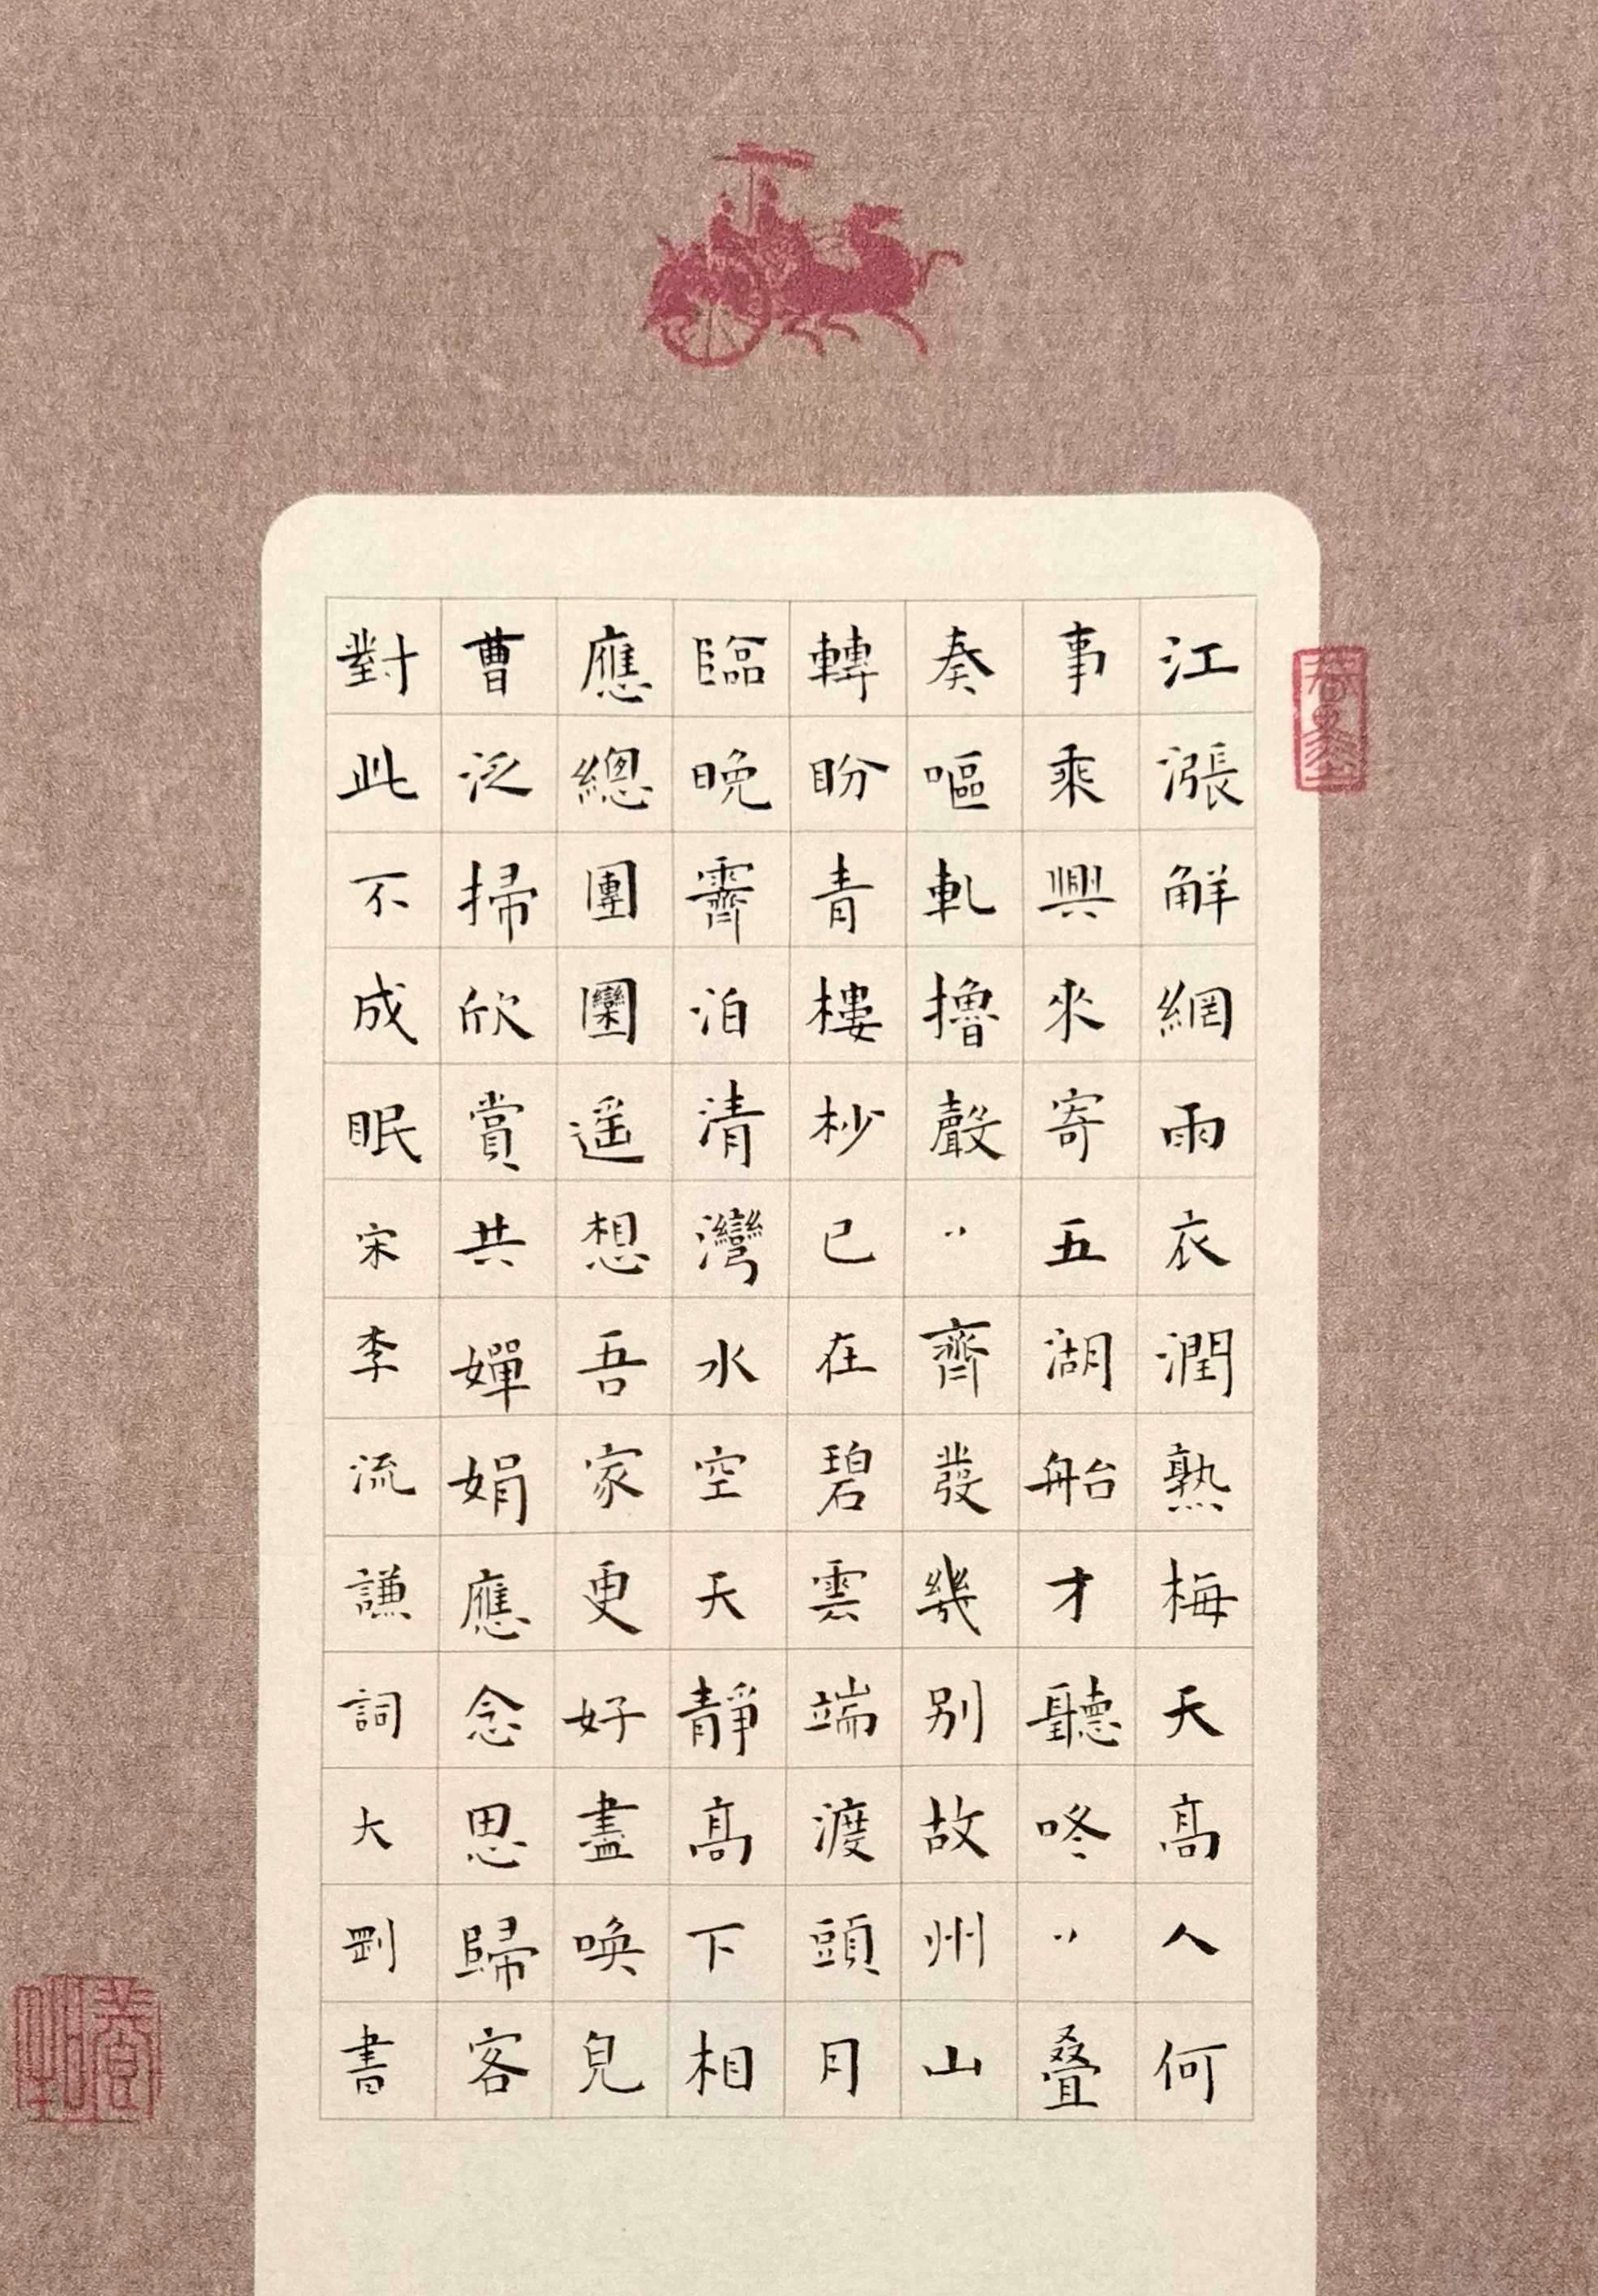 江漲解網雨衣潤熟梅天高人何
事乘興來寄五湖船才聽咚〻叠
奏嘔軋擼聲〻齊發幾別故州山
轉盼青樓杪已在碧雲端渡頭月
臨晚霽泊清灣水空天靜高下相
應總團圞遥想吾家更好盡喚兒
曹泛掃欣賞共嬋娟應念思歸客
對此不成眠宋李流謙詞大剛書